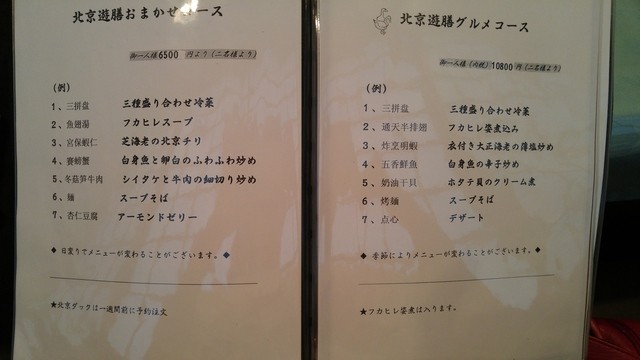 北京遊膳おまかせコース
御一人様6500 円より(二名様より)
(例)
1、三拼盘 三種盛り合わせ冷菜
2、魚翅湯 フカヒレスープ
3、宮保蝦仁 芝海老の北京チリ
4、賽螃蟹 白身魚と卵白のふわふわ炒め
5、冬菇笋牛肉 シイタケと牛肉の細切り炒め
6、麺 スープそば
7、杏仁豆腐 アーモンドゼリー
◆ 日変りでメニューが変わることがございます。◆
★北京ダックは一週間前に予約注文
北京遊膳グルメコース
御一人様(内税)10800円(二名様より)
(例)
1、三拼盘 三種盛り合わせ冷菜
2、通天半排翅 フカヒレ姿煮込み
3、炸烹明蝦 衣付き大正海老の薄塩炒め
4、五香鮮魚 白身魚の辛子炒め
5、奶油干貝 ホタテ貝のクリーム煮
6、烤麺 スープそば
7、点心 デザート
◆ 季節によりメニューが変わることがございます。◆
★フカヒレ姿煮は入ります。